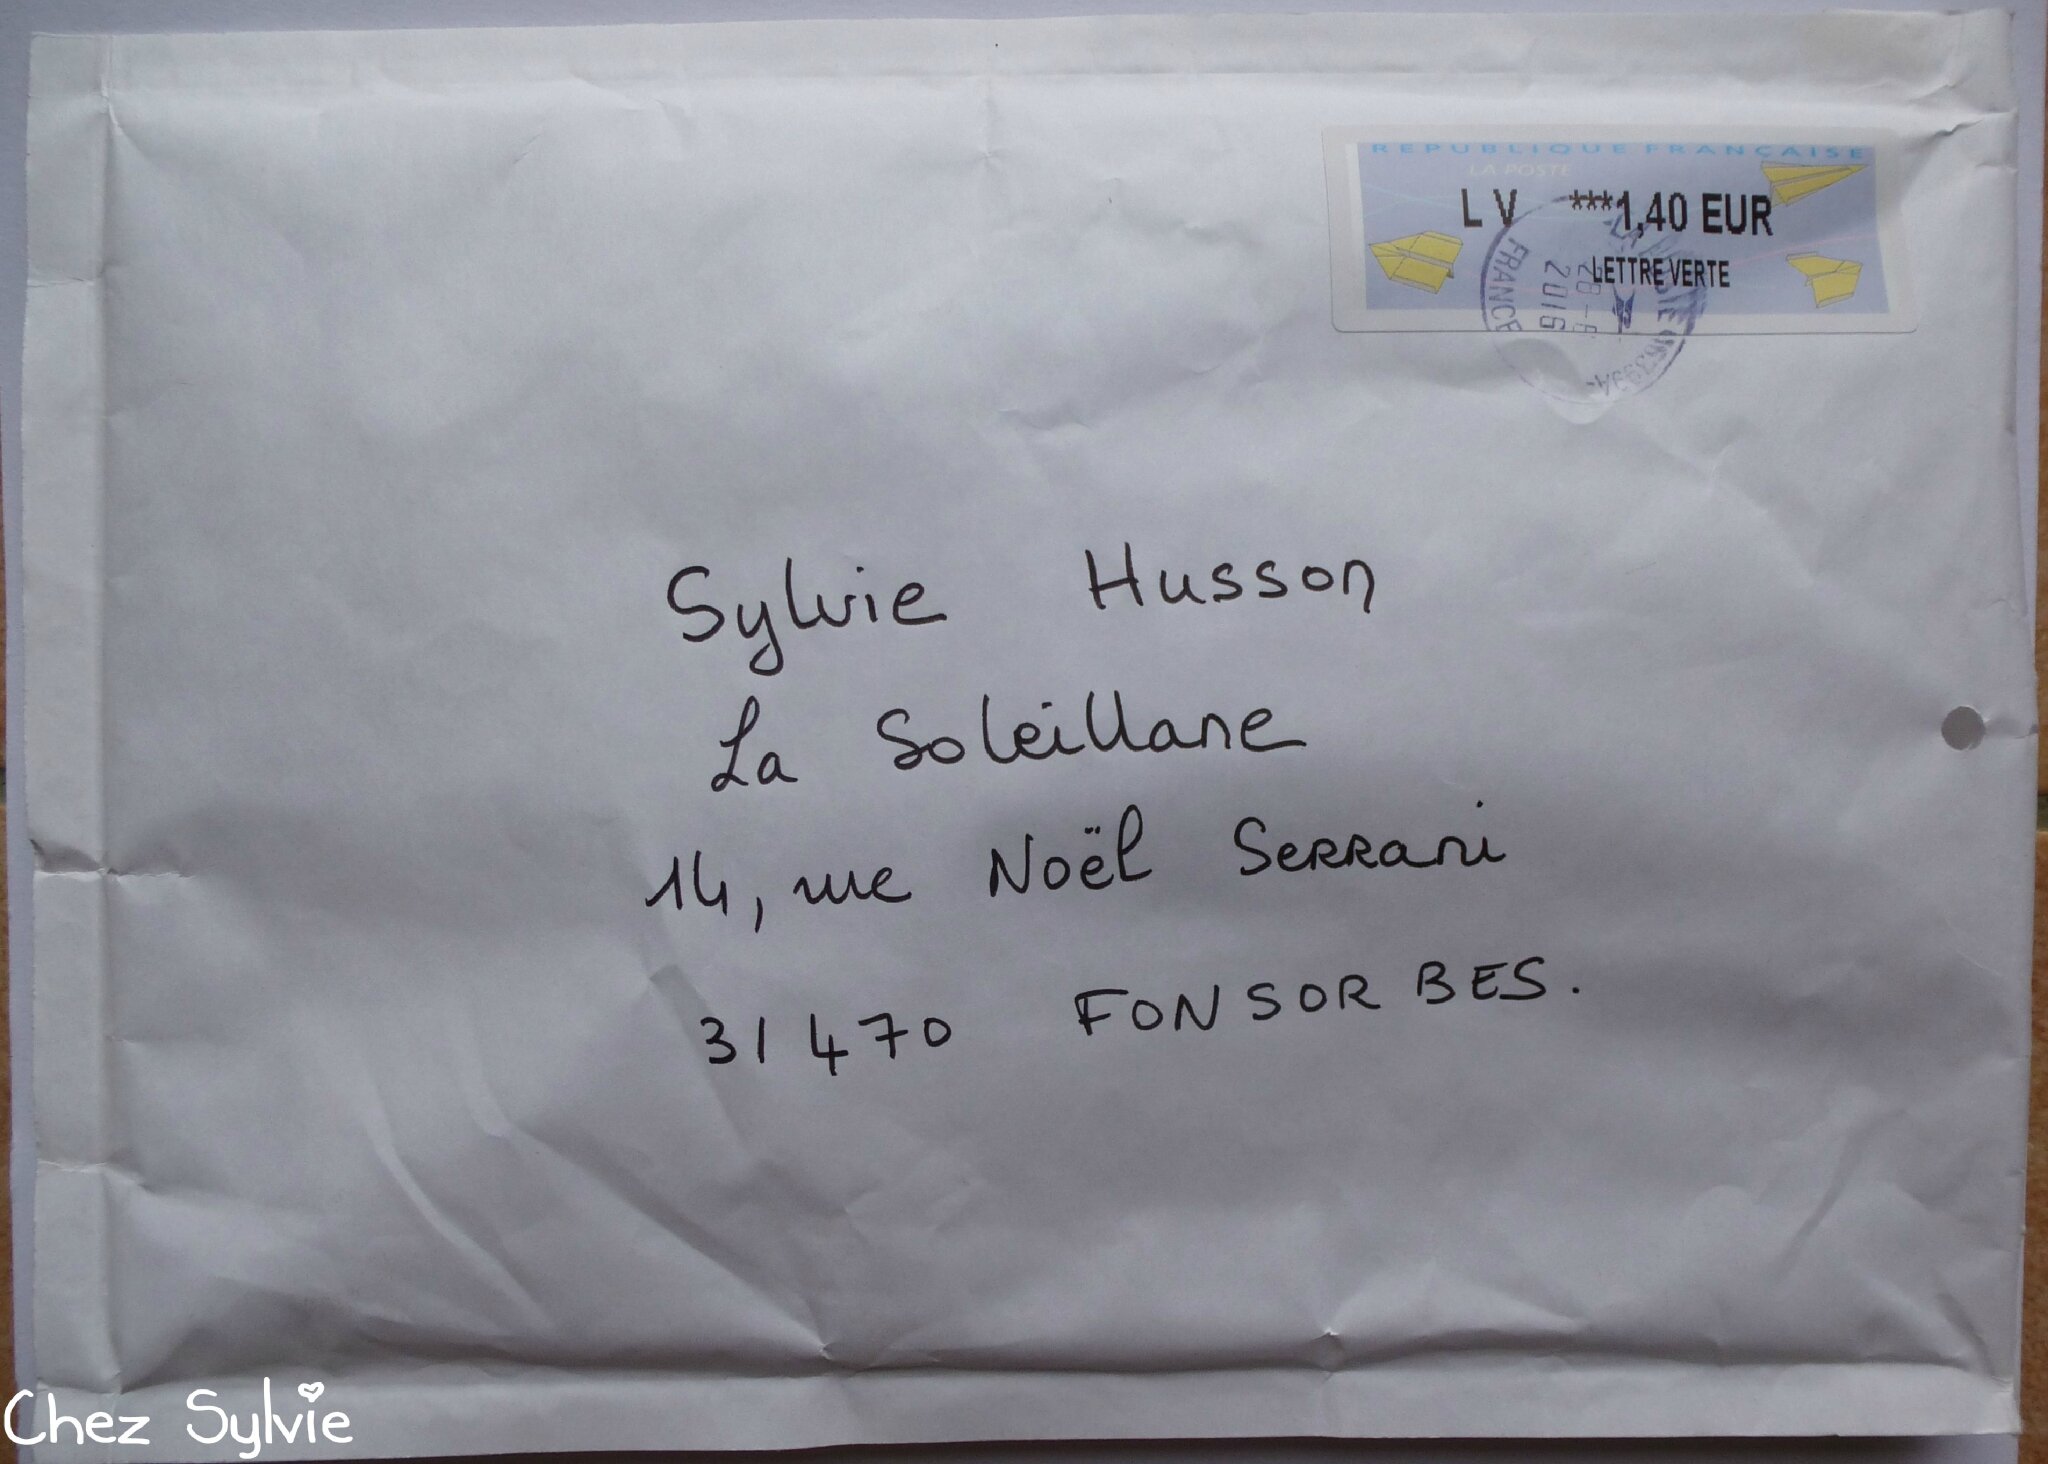 REPUBLIQUE FRANÇAISE
LA POSTE
LV ***1,40 EUR
LETTRE VERTE
FRANCE
2016
Sylvie Husson
La Soleillane
14, rue Noël Serrani
31470 FONSORBES.
Chez Sylvie